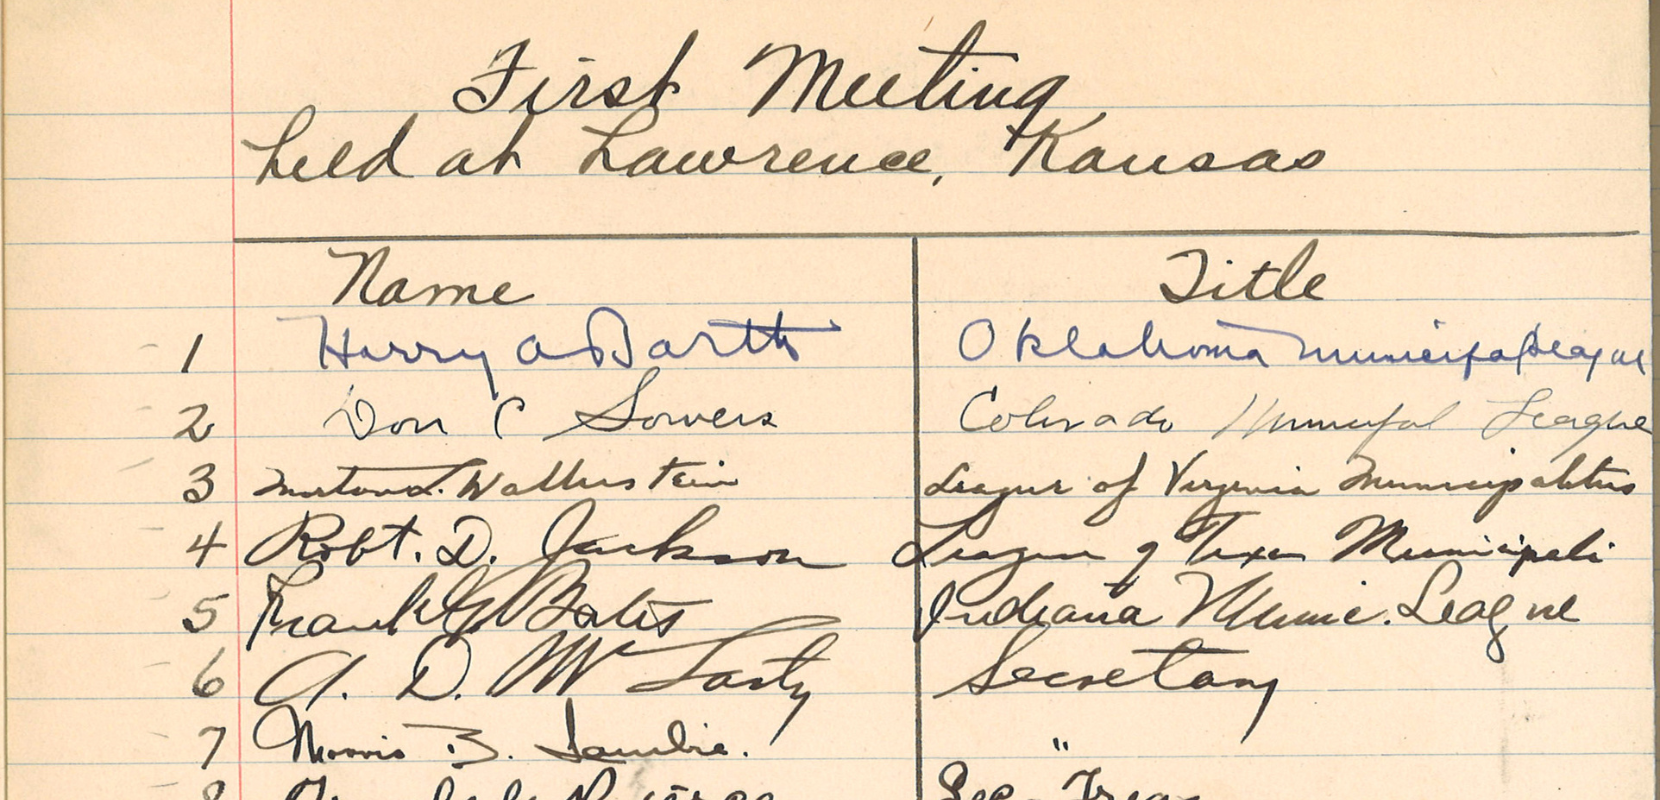 First Meeting
held at Lawrence, Kansas
Name Title
1 Harry A Barth Oklahoma Municipal League
2 Don C Sowers Colorado Municipal League
3 Morton L. Wallerstein League of Virginia Municipalities
4 Robt. D. Jackson League of Texas Municipali
5 Frank G Bates Indiana Munic. League
6 A. D. Secretary
7 Morris B. Lambie. "
8 Sec - Treas